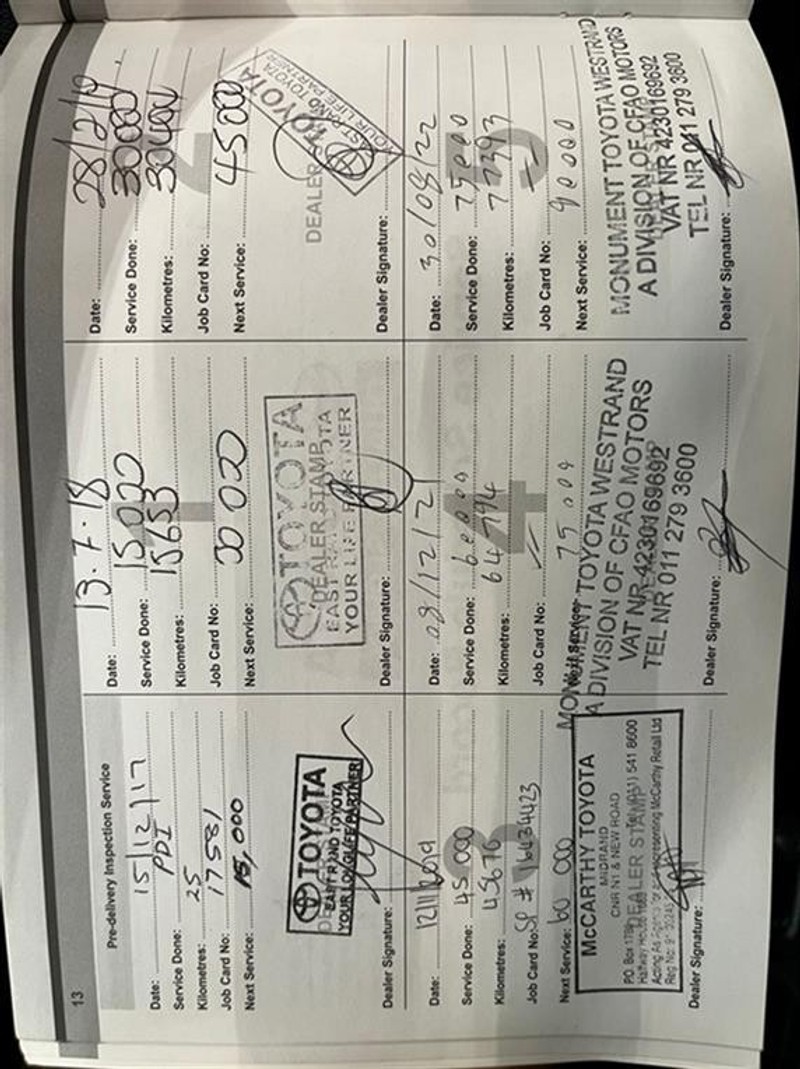 13
Pre-delivery Inspection Service
Date: 15/12/17
Service Done: PDI
Kilometres: 25
Job Card No: 17581
Next Service: 15,000
TOYOTA
EAST RAND TOYOTA
YOUR LONGLIFE PARTNER
Dealer Signature:
1
Date: 13.7.18
Service Done: 15 000
Kilometres: 15653
Job Card No:
Next Service: 30 000
TOYOTA
DEALER STAMP
EAST RAND TOYOTA
YOUR LIFE PARTNER
Dealer Signature:
2
Date: 28/2/19
Service Done: 30000
Kilometres:
Job Card No:
Next Service: 45000
TOYOTA
EAST RAND TOYOTA
YOUR LIFE PARTNER
DEALER
Dealer Signature:
3
Date: 12/11/2019
Service Done: 45 000
Kilometres: 45676
Job Card No: SP # 16434423
Next Service: 60 000
McCARTHY TOYOTA
MIDRAND
CNR N1 & NEW ROAD
PO. Box 1798 541 8600
DEALER STAMP
Halfway House
Acting As Agency for and representing McCarthy Retail Ltd
Reg No:
Dealer Signature:
4
Date: 08/12/21
Service Done: 60000
Kilometres: 64794
Job Card No: //
Next Service: 75 000
MONUMENT TOYOTA WESTRAND
A DIVISION OF CFAO MOTORS
VAT NR 4230169692
TEL NR 011 279 3600
Dealer Signature:
5
Date: 30/08/22
Service Done: 75000
Kilometres: 77393
Job Card No: //
Next Service: 90000
MONUMENT TOYOTA WESTRAND
A DIVISION OF CFAO MOTORS
VAT NR 4230169692
TEL NR 011 279 3600
Dealer Signature: